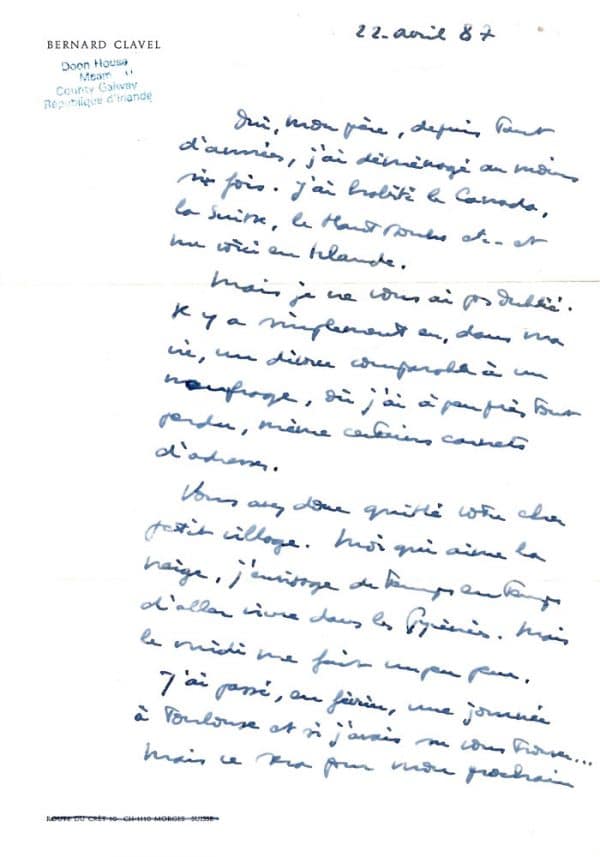 22-avril 87
BERNARD CLAVEL
Doon House
County Galway
République d'Irlande
Oui, mon père, depuis tant
d'années, j'ai déménagé au moins
six fois. J'ai habité le Canada,
la Suisse, le Haut Doubs etc.. et
me voici en Irlande.
Mais je ne vous ai pas oublié.
Il y a simplement eu, dans ma
vie, un divorce comparable à un
naufrage, où j'ai à peu près tout
perdu, même certains carnets
d'adresses.
Vous avez donc quitté votre cher
petit village. Moi qui aime la
neige, j'envisage de temps en temps
d'aller vivre dans les Pyrénées. Mais
le midi me fait un peu peur.
J'ai passé, en février, une journée
à Toulouse et si j'avais su vous trouver...
Mais ce sera pour mon prochain
ROUTE DU CRÊT 10 CH-1110 MORGES SUISSE